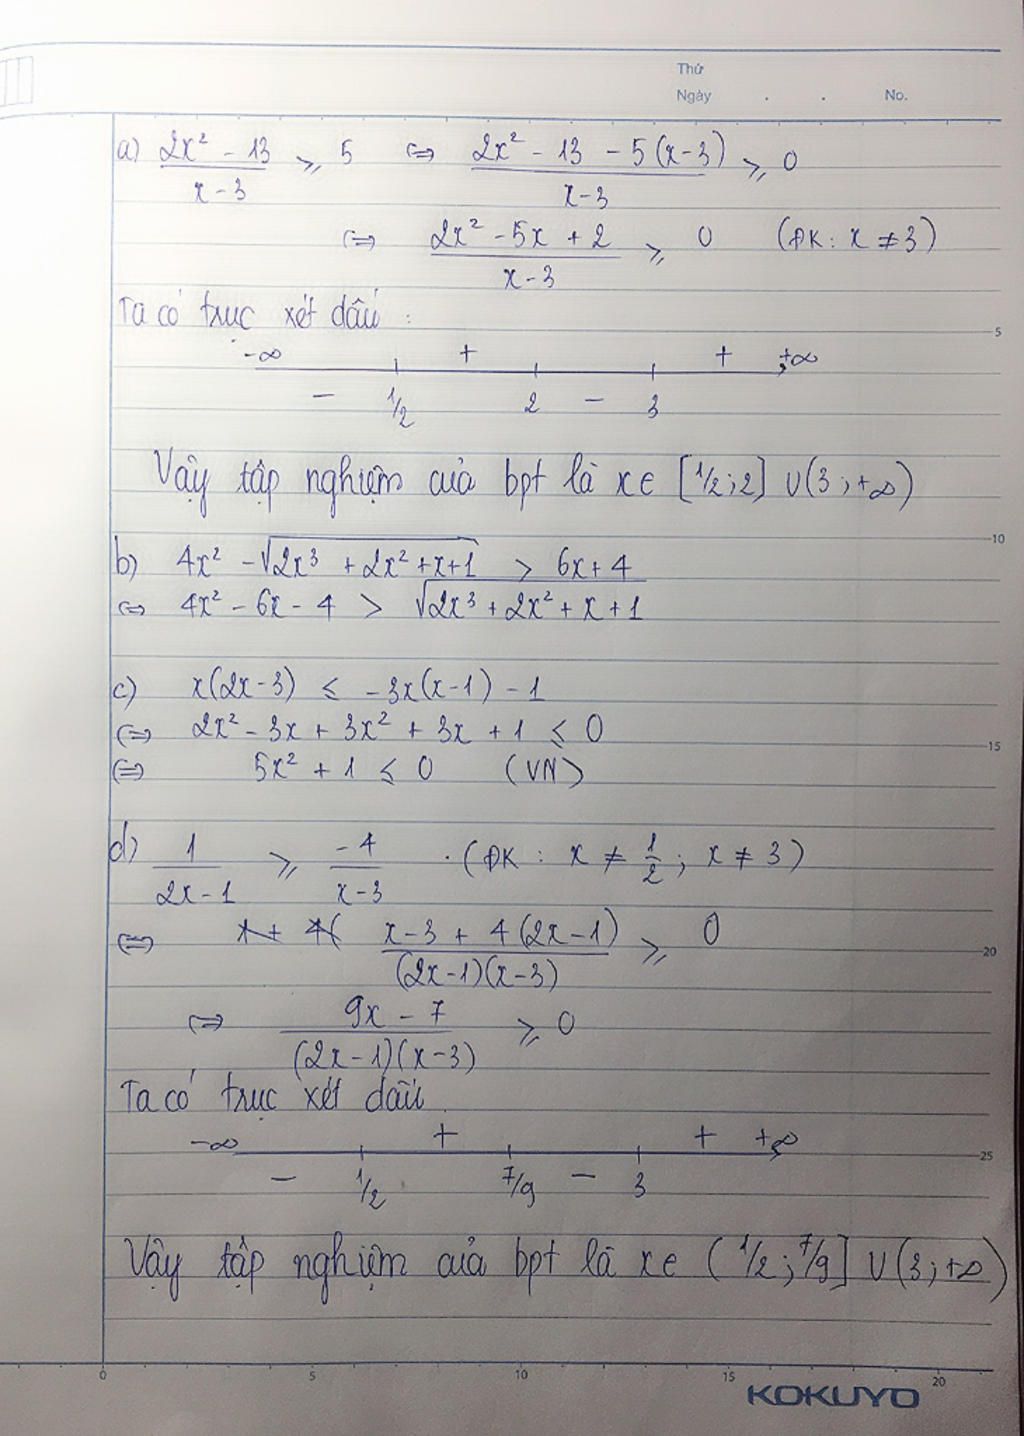 Thứ
Ngày . . No.
a) (2x² - 13)/(x - 3) ≥ 5 ⇔ (2x² - 13 - 5(x-3))/(x-3) ≥ 0
⇔ (2x² - 5x + 2)/(x-3) ≥ 0 (ĐK: x ≠ 3)
Ta có trục xét dấu :
5
-∞ + + +∞
- 1/2 2 - 3
Vậy tập nghiệm của bpt là x∈ [1/2;2] ∪(3;+∞)
10
b) 4x² - √(2x³ + 2x² + x+1) > 6x+4
⇔ 4x² - 6x - 4 > √(2x³ + 2x² + x + 1)
c) x(2x-3) ≤ -3x(x-1) - 1
⇔ 2x² - 3x + 3x² + 3x + 1 ≤ 0
15
⇔ 5x² + 1 ≤ 0 (VN)
d) 1/(2x-1) ≥ -4/(x-3) . (ĐK : x ≠ 1/2 ; x ≠ 3)
⇔ (x-3 + 4(2x-1))/((2x-1)(x-3)) ≥ 0
20
⇔ (9x - 7)/((2x-1)(x-3)) ≥ 0
Ta có trục xét dấu
-∞ + + +∞
25
- 1/2 7/9 - 3
Vậy tập nghiệm của bpt là x∈ (1/2;7/9] ∪(3;+∞)
0 5 10 15 20
KOKUYO